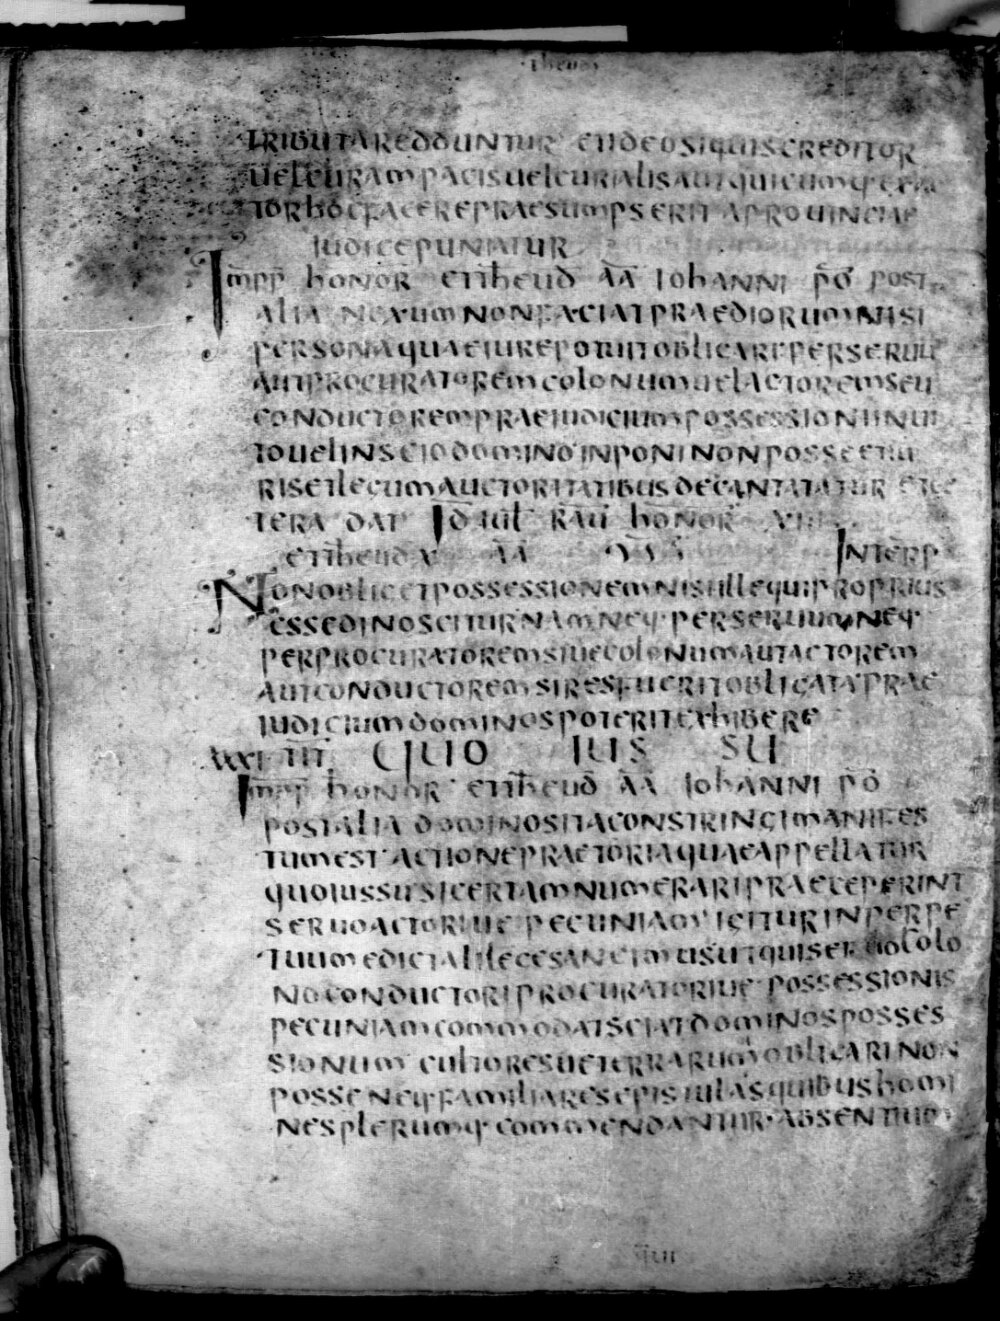 Theud
TRIBUTAREDDUNTUR ETIDEOSIQUISCREDITOR
UELCURAMPACISUELCURIALISAUTQUICUMQ·EXAC
TORHOCFACEREPRAESUMPSERIT APROUINCIAE
IUDICEPUNIATUR
Impp honor etTheud aa Iohanni po post
ALIA NEXUMNONFACIATPRAEDIORUMNISI
PERSONAQUAEIUREPOTUITOBLICAREPERSERUU
AUTPROCURATOREMCOLONUMUELACTOREMSEU
CONDUCTOREMPRAEIUDICIUMPOSSESSIONIINUI
TOUELINSCIODOMINOINPONINONPOSSEETIU
RISETLEGUMAUCTORITATIBUSDECANTATATUR ETCE
TERA DAT Id iul Rau honor VIII
etTheud V aa Interp
NONOBLIGETPOSSESSIONEMNISIILLEQUIPROPRIUS
ESSEDINOSCITURNAMNEQ·PERSERUUMNEQ·
PERPROCURATOREMSIUECOLONUMAUTACTOREM
AUTCONDUCTOREMSIRESFUERITOBLIGATAPRAE
IUDICIUMDOMINOSPOTERITEXHIBERE
XXXI TIT QUO IUS SU
Impp honor etTheud aa Iohanni po
POSTALIA DOMINOSITACONSTRINGIMANIFES
TUMEST ACTIONEPRAETORIAQUAEAPPELLATUR
QUOIUSSUSICERTAMNUMERARIPRAECEPERINT
SERUOACTORIUE PECUNIAM IGITURINPERPE
TUUMEDICTALILEGESANCIMUSUTQUISERUOCOLO
NOCONDUCTORIPROCURATORIUE POSSESSIONIS
PECUNIAMCOMMODATSCIATDOMINOSPOSSES
SIONUM CULTORESUETERRARUMOBLICARINON
POSSENEQ·FAMILIARESEPISTULASQUIBUSHOMI
NESPLERUMQ·COMMENDANTUR·ABSENTIUM